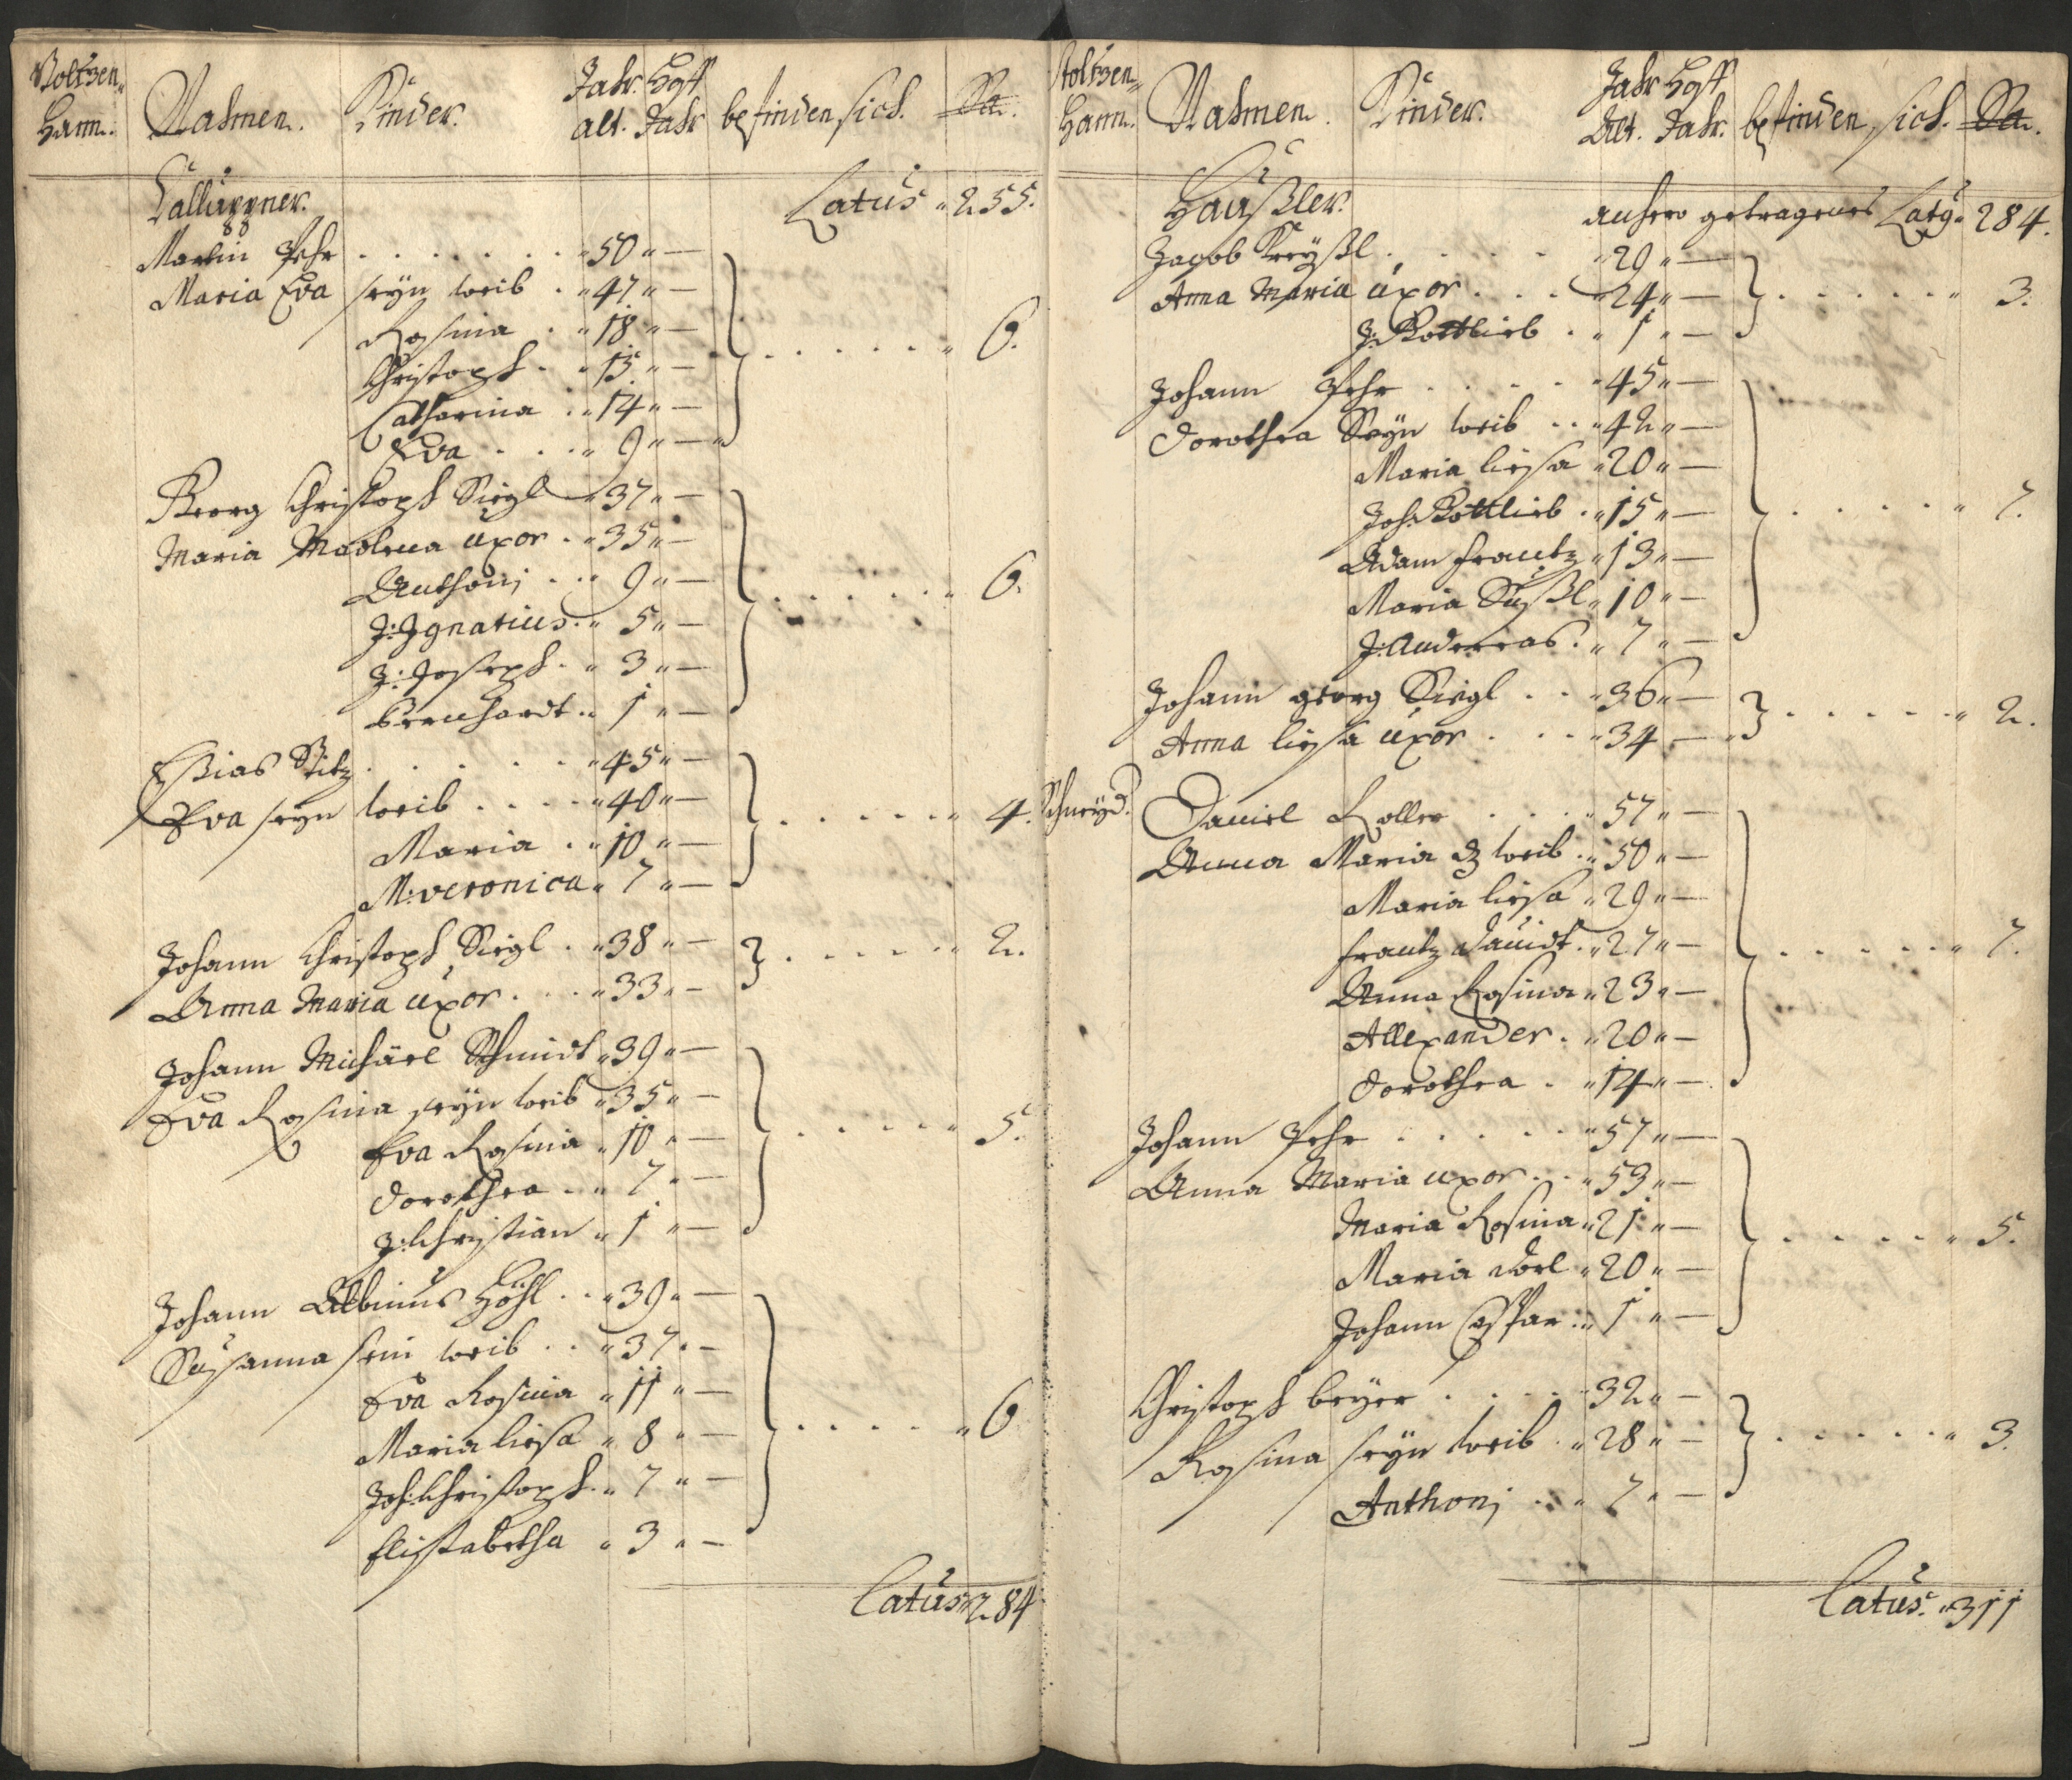 Stoltzen-
Hann:
Nahmen.
Kinder.
Jahr. Hoff
alt. Jahr
befinden sich.
Sa.
Callüppner.
Latus " 255.
Martin Pehr . . . . . . . " 50 " —
Maria Eva seyn weib . " 47 " —
Rosina . " 18 " —
Christoph . " 15 " — . . . . . " 6.
Catharina . " 14 " —
Eva . . . " 9 " — "
Georg Christoph Siegl " 37 " —
Maria Madlena uxor . " 35 " —
Anthonj . . " 9 " —
J: Jgnatius . " 5 " — . . . . . " 6.
J: Joseph . " 3 " —
Bernhardt . " 1 " —
Eßias Stitz . . . . . . " 45 " —
Eva seyn weib . . . . " 40 " — . . . . . " 4.
Maria . " 10 " —
M: veronica " 7 " —
Johann Christoph Siegl . " 38 " — . . . . . " 2.
Anna Maria uxor . . . " 33 " —
Johann Michäel Schmidt " 39 " —
Eva Rosina seyn weib " 35 " —
Eva Rosina " 10 " — . . . . . " 5.
Dorothea . . " 7 " —
J: Christian " 1 " —
Johann Albinus Höhl . . " 39 " —
Susanna sein weib . . " 37 " —
Eva Rosina " 11 " —
Maria liesa " 8 " — . . . . . " 6
Joh: Christoph . " 7 " —
Elisabetha " 3 " —
Latus " 284
Stoltzen-
Hann.
Nahmen.
Kinder.
Jahr Hoff
Alt. Jahr.
befinden sich.
Sa.
Haußler.
anhero getragenes Latg " 284.
Jacob Kreyßl . . . . . " 29 " —
Anna Maria uxor . . . " 24 " — . . . . . . " 3.
J: Gottlieb . " 1 " —
Johann Pehr . . . . . " 45 " —
Dorothea Seyn weib . . " 42 " —
Maria liesa " 20 " —
Joh: Gottlieb . " 15 " — . . . . . " 7.
Adam Frantz " 13 " —
Maria Sußl " 10 " —
J: Andereas . " 7 " —
Johann georg Siegl . . " 36 " — . . . . . " 2.
Anna liesa uxor . . . " 34 " — "
Schneyd.
Daniel Roller . . . . " 57 " —
Anna Maria d weib . " 50 " —
Maria liesa " 29 " —
Frantz Dauidt . " 27 " — . . . . . " 7.
Anna Rosina " 23 " —
Allexander . " 20 " —
Dorothea . " 14 " —
Johann Pehr . . . . . " 57 " —
Anna Maria uxor . . " 53 " —
Maria Rosina " 21 " — . . . . . " 5.
Maria Dorl " 20 " —
Johann Caspar : " 1 " —
Christoph beyer . . . . " 32 " —
Rosina seyn weib . " 28 " — . . . . . " 3.
Anthonj . . " 7 " —
Latus. " 311